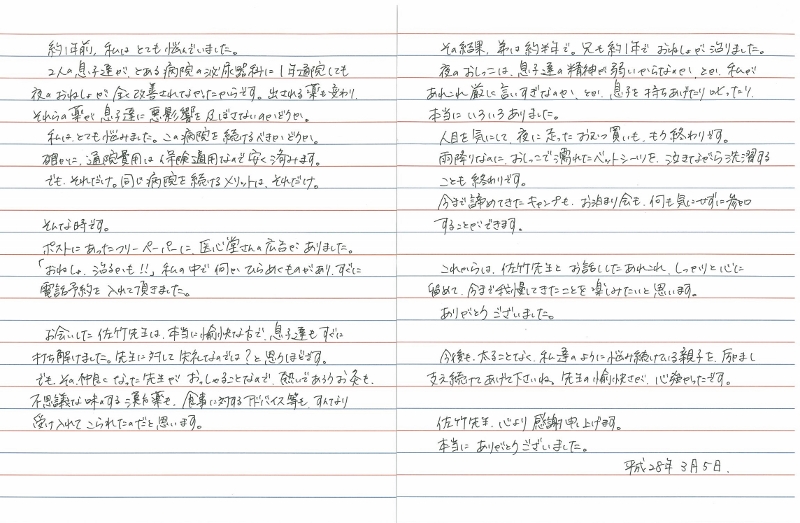 約1年前、私はとても悩んでいました。
2人の息子達が、とある病院の泌尿器科に1年通院しても
夜のおねしょが全く改善されなかったからです。出される薬も変わり、
それらの薬が息子達に悪影響を及ぼさないのかどうか。
私はとても悩みました。この病院を続けるべきかどうか。
確かに、通院費用は保険適用なので安く済みます。
でも、それだけ。同じ病院を続けるメリットは、それだけ。
そんな時です。
ポストにあったフリーペーパーに、医心堂さんの広告がありました。
「おねしょ、治るかも!!」私の中で何かひらめくものがあり、すぐに
電話予約を入れて頂きました。
お会いした佐竹先生は、本当に愉快な方で、息子達もすぐに
打ち解けました。先生に対して失礼なのでは?と思うほどです。
でも、その仲良くなった先生がおっしゃることなので、熱いであろうお灸も、
不思議な味のする漢方薬も、食事に対するアドバイス等も、すんなり
受け入れてこられたのだと思います。
その結果、弟は約半年で。兄も約1年でおねしょが治りました。
夜のおしっこは、息子達の精神が弱いからなのか、とか、私が
あれこれ厳しく言いすぎなのか、とか、息子を持ちあげたり叱ったり、
本当にいろいろありました。
人目を気にして、夜に走ったおむつ買いも、もう終わりです。
雨降りなのに、おしっこで濡れたベットシーツを、泣きながら洗濯する
ことも終わりです。
今まで諦めてきたキャンプも、お泊り会も、何も気にせずに参加
することができます。
これからは、佐竹先生とお話ししたあれこれ、しっかりと心に
留めて、今まで我慢してきたことを楽しみたいと思います。
ありがとうございました。
今後も、太ることなく、私達のように悩み続けている親子を、励まし
支え続けてあげて下さいね。先生の愉快さが、心強かったです。
佐竹先生、心より感謝申し上げます。
本当にありがとうございました。
平成28年3月5日.